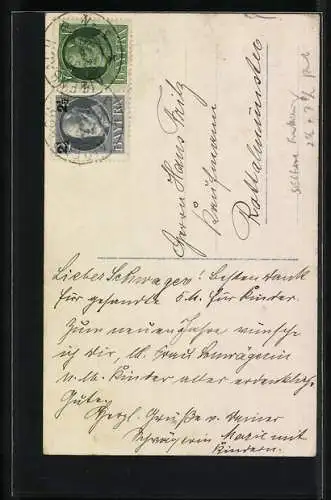 BAYERN
2½ 2½
BAYERN
Herrn Hans Fritz
Kaufmann
Rotthalmünster
Lieber Schwager! Besten Dank
für gesandte 5 M. für Kinder.
Zum neuen Jahre wünsche
ich Dir, lb. Frau Schwägerin
u. lb. Kinder alles erdenkliche
Gute.
Herzl. Grüße v. Deiner
Schwägerin Marie mit
Kindern.